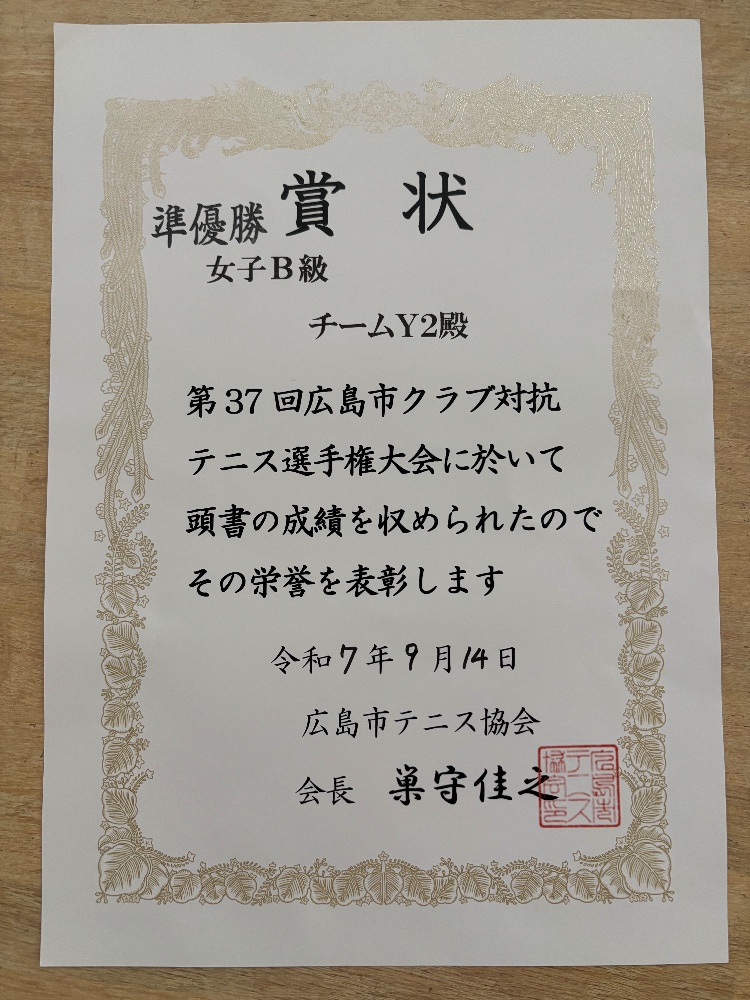 賞状
準優勝
女子B級
チームY2殿
第37回広島市クラブ対抗
テニス選手権大会に於いて
頭書の成績を収められたので
その栄誉を表彰します
令和7年9月14日
広島市テニス協会
会長 巣守佳之
広島市
テニス
協会印